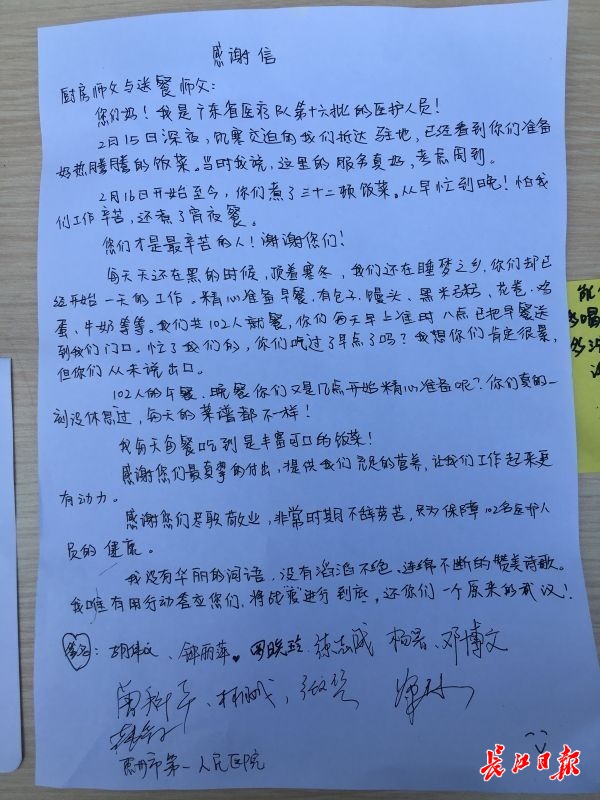 感谢信
厨房师父与送餐师父:
您们好!我是广东省医疗队第十六批的医护人员!
2月15日深夜,饥寒交迫的我们抵达驻地,已经看到你们准备
好热腾腾的饭菜。当时我说,这里的服务真好,考虑周到。
2月16日开始至今,你们煮了三十二顿饭菜。从早忙到晚!怕我
们工作辛苦,还煮了宵夜餐。
您们才是最辛苦的人!谢谢您们!
每天天还在黑的时候,顶着寒冬,我们还在睡梦之乡,你们却已
经开始一天的工作。精心准备早餐.有包子、馒头、黑米粥、花卷、鸡
蛋、牛奶等等。我们共102人就餐,你们每天早上准时八点已把早餐送
到我们门口。忙了我们的,你们吃过了早点了吗?我想你们肯定很累,
但你们从未说出口。
102人的午餐、晚餐你们又是几点开始精心准备呢?你们真的一
刻没休息过,每天的菜谱都不一样!
我每天每餐吃到是丰富可口的饭菜!
感谢您们最真挚的付出,提供我们充足的营养,让我们工作起来更
有动力。
感谢您们尽职敬业,非常时期不辞劳苦,只为保障102名医护人
员的健康。
我没有华丽的词语,没有滔滔不绝、连绵不断的赞美诗歌。
我唯有用行动答应您们,将战疫进行到底,还你们一个原来的武汉!
签名: 邓丽萍 杨署、邓博文
惠州市第一人民医院
长江日报